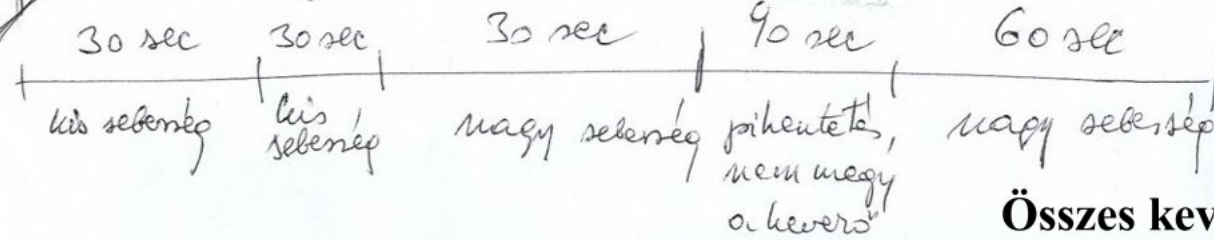 30 sec 30 sec 30 sec 90 sec 60 sec
kis sebesség kis sebesség nagy sebesség pihentetés, nem megy a keverő nagy sebesség
Összes kev